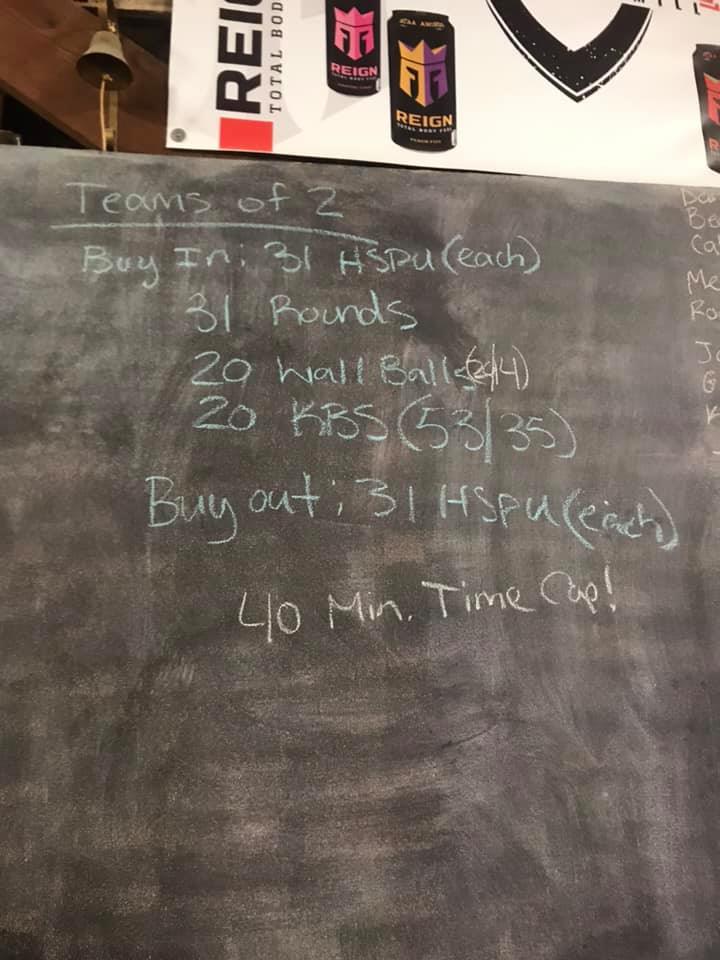 REIGN
TOTAL BODY FUEL
BCAA AMINOS
REIGN
TOTAL BODY FUEL
Teams of 2
Buy In: 31 HSPU (each)
31 Rounds
20 Wall Balls (20/14)
20 KBS (53/35)
Buy out: 31 HSPU (each)
40 Min. Time Cap!
Be
Me
Ro